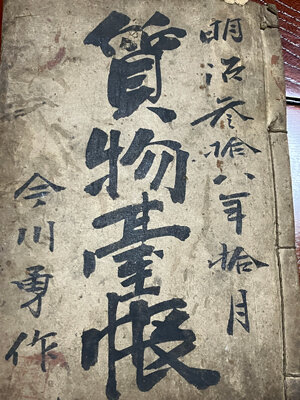 明治参拾六年拾月
質物臺帳
今川勇作